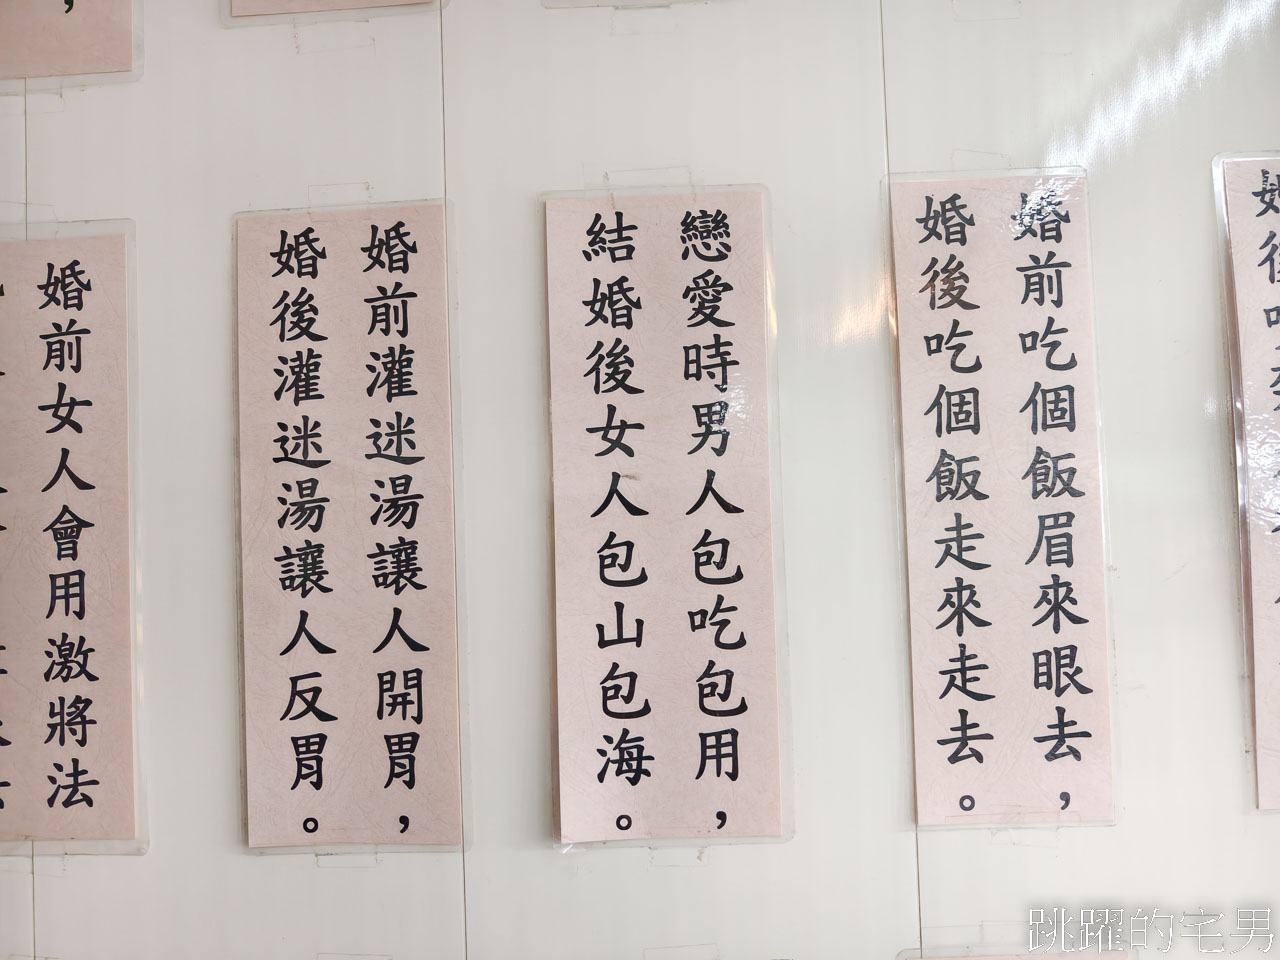 婚前吃個飯眉來眼去，
婚後吃個飯走來走去。
戀愛時男人包吃包用，
結婚後女人包山包海。
婚前灌迷湯讓人開胃，
婚後灌迷湯讓人反胃。
婚前女人會用激將法
跳躍的宅男